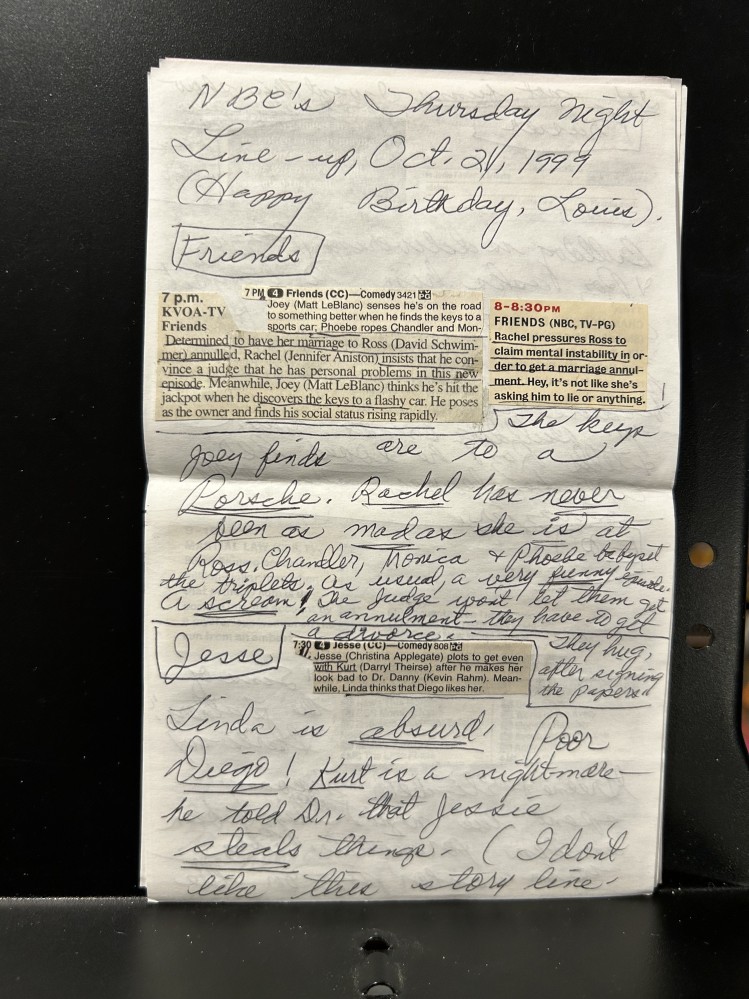 NBC's Thursday Night
Line-up, Oct. 21, 1999
(Happy Birthday, Louis).
Friends
7 p.m.
KVOA-TV
Friends
Determined to have her marriage to Ross (David Schwim-
mer) annulled, Rachel (Jennifer Aniston) insists that he con-
vince a judge that he has personal problems in this new
episode. Meanwhile, Joey (Matt LeBlanc) thinks he's hit the
jackpot when he discovers the keys to a flashy car. He poses
as the owner and finds his social status rising rapidly.
7 PM 4 Friends (CC)—Comedy 3421
Joey (Matt LeBlanc) senses he's on the road
to something better when he finds the keys to a
sports car; Phoebe ropes Chandler and Mon-
8-8:30PM
FRIENDS (NBC, TV-PG)
Rachel pressures Ross to
claim mental instability in or-
der to get a marriage annul-
ment. Hey, it's not like she's
asking him to lie or anything.
The keys
Joey finds are to a
Porsche. Rachel has never
been as mad as she is at
Ross. Chandler, Monica & Phoebe babysit
the triplets. As usual, a very funny episode.
A scream! The Judge won't let them get
an annulment – they have to get
a divorce.
They hug,
after signing
the papers.
Jesse
7:30 4 Jesse (CC)—Comedy 808
Jesse (Christina Applegate) plots to get even
with Kurt (Darryl Theirse) after he makes her
look bad to Dr. Danny (Kevin Rahm). Mean-
while, Linda thinks that Diego likes her.
Linda is absurd. Poor
Diego! Kurt is a nightmare –
he told Dr. that Jessie
steals things. (I don't
like this story line.